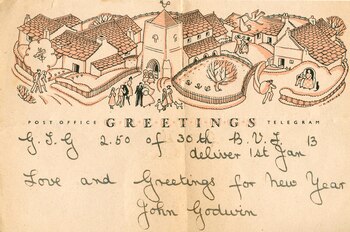 POST OFFICE GREETINGS TELEGRAM
G.T.G 2.50 of 30th B.V.I. 13
deliver 1st Jan
Love and Greetings for New Year
John Godwin